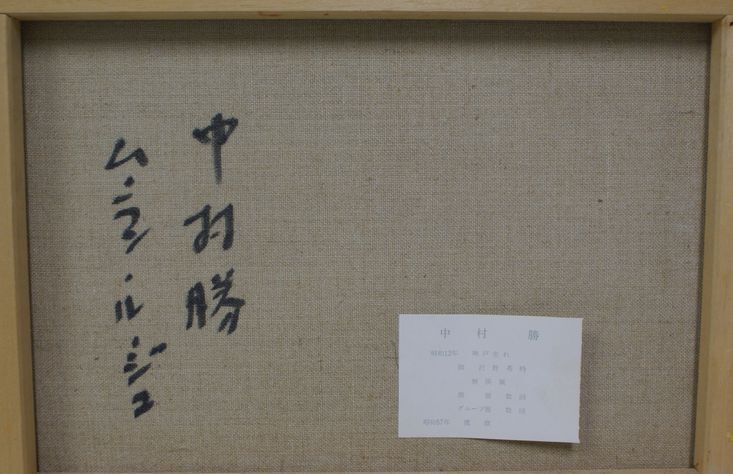 中村勝
ムーラン・ルージュ
中村 勝
昭和12年 神戸生れ
個展 数回
グループ展 数回
昭和57年 渡欧